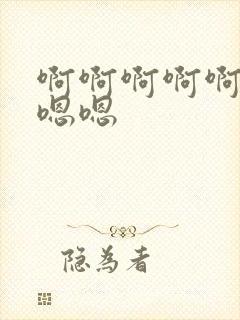 啊啊啊啊啊
嗯嗯
隐为者